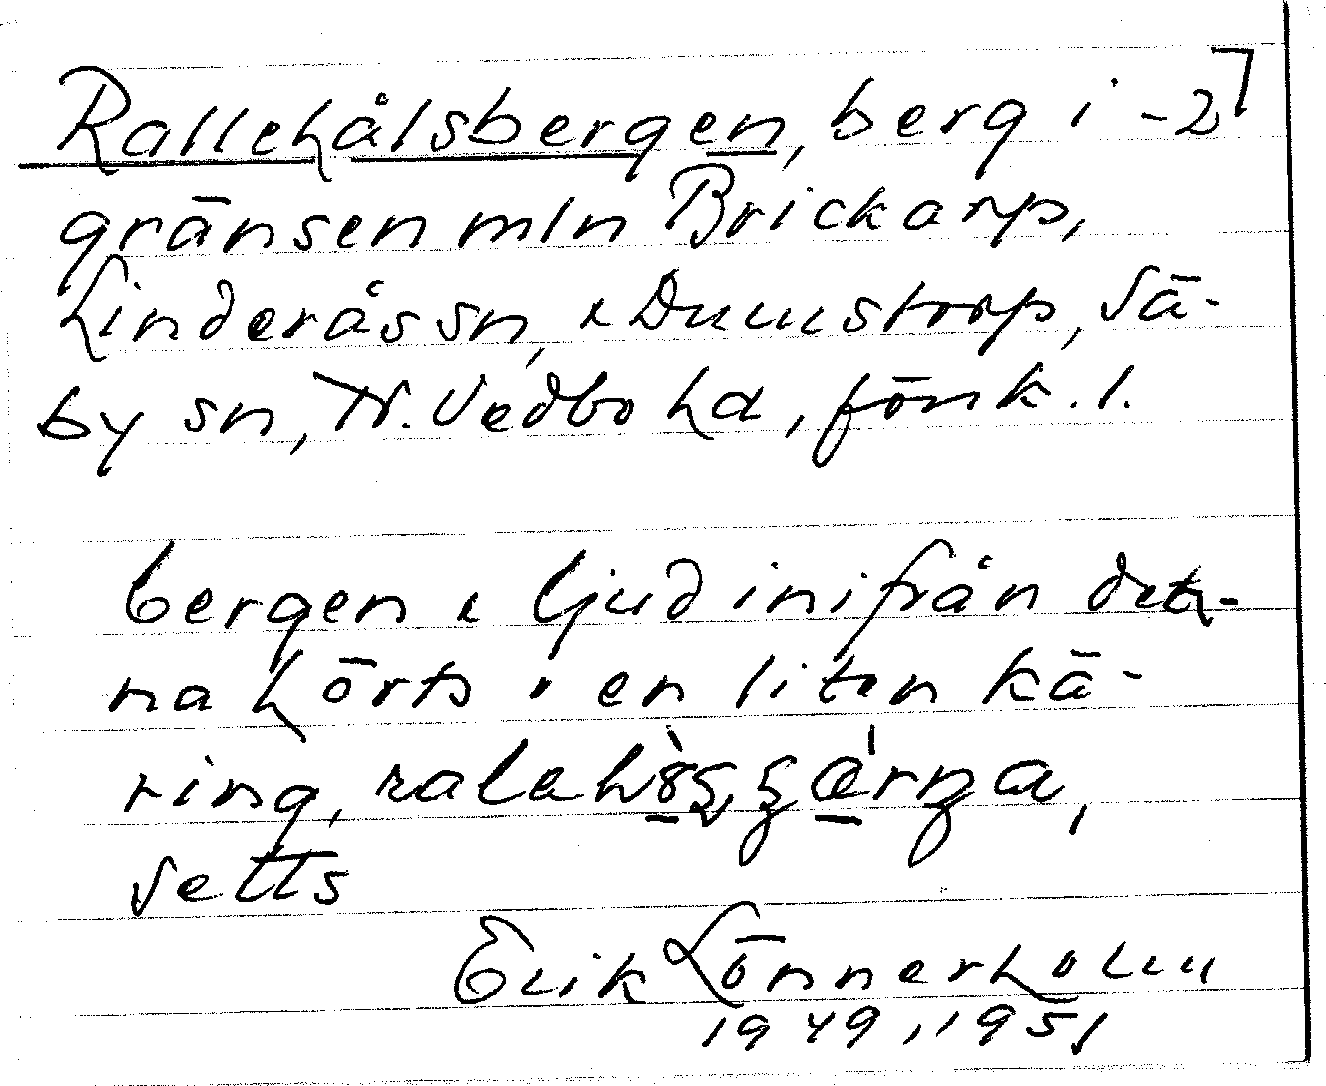 Rallehålsbergen, berg i -2
gränsen mln Brickarp,
Linderås sn, & Dumstorp, Sä-
by sn, N. Vedbo hd, Jönk. l.
bergen & ljud inifrån den-
na hörts i en liten kä-
ring,
setts
Erik Lönnerholm
1949, 1951